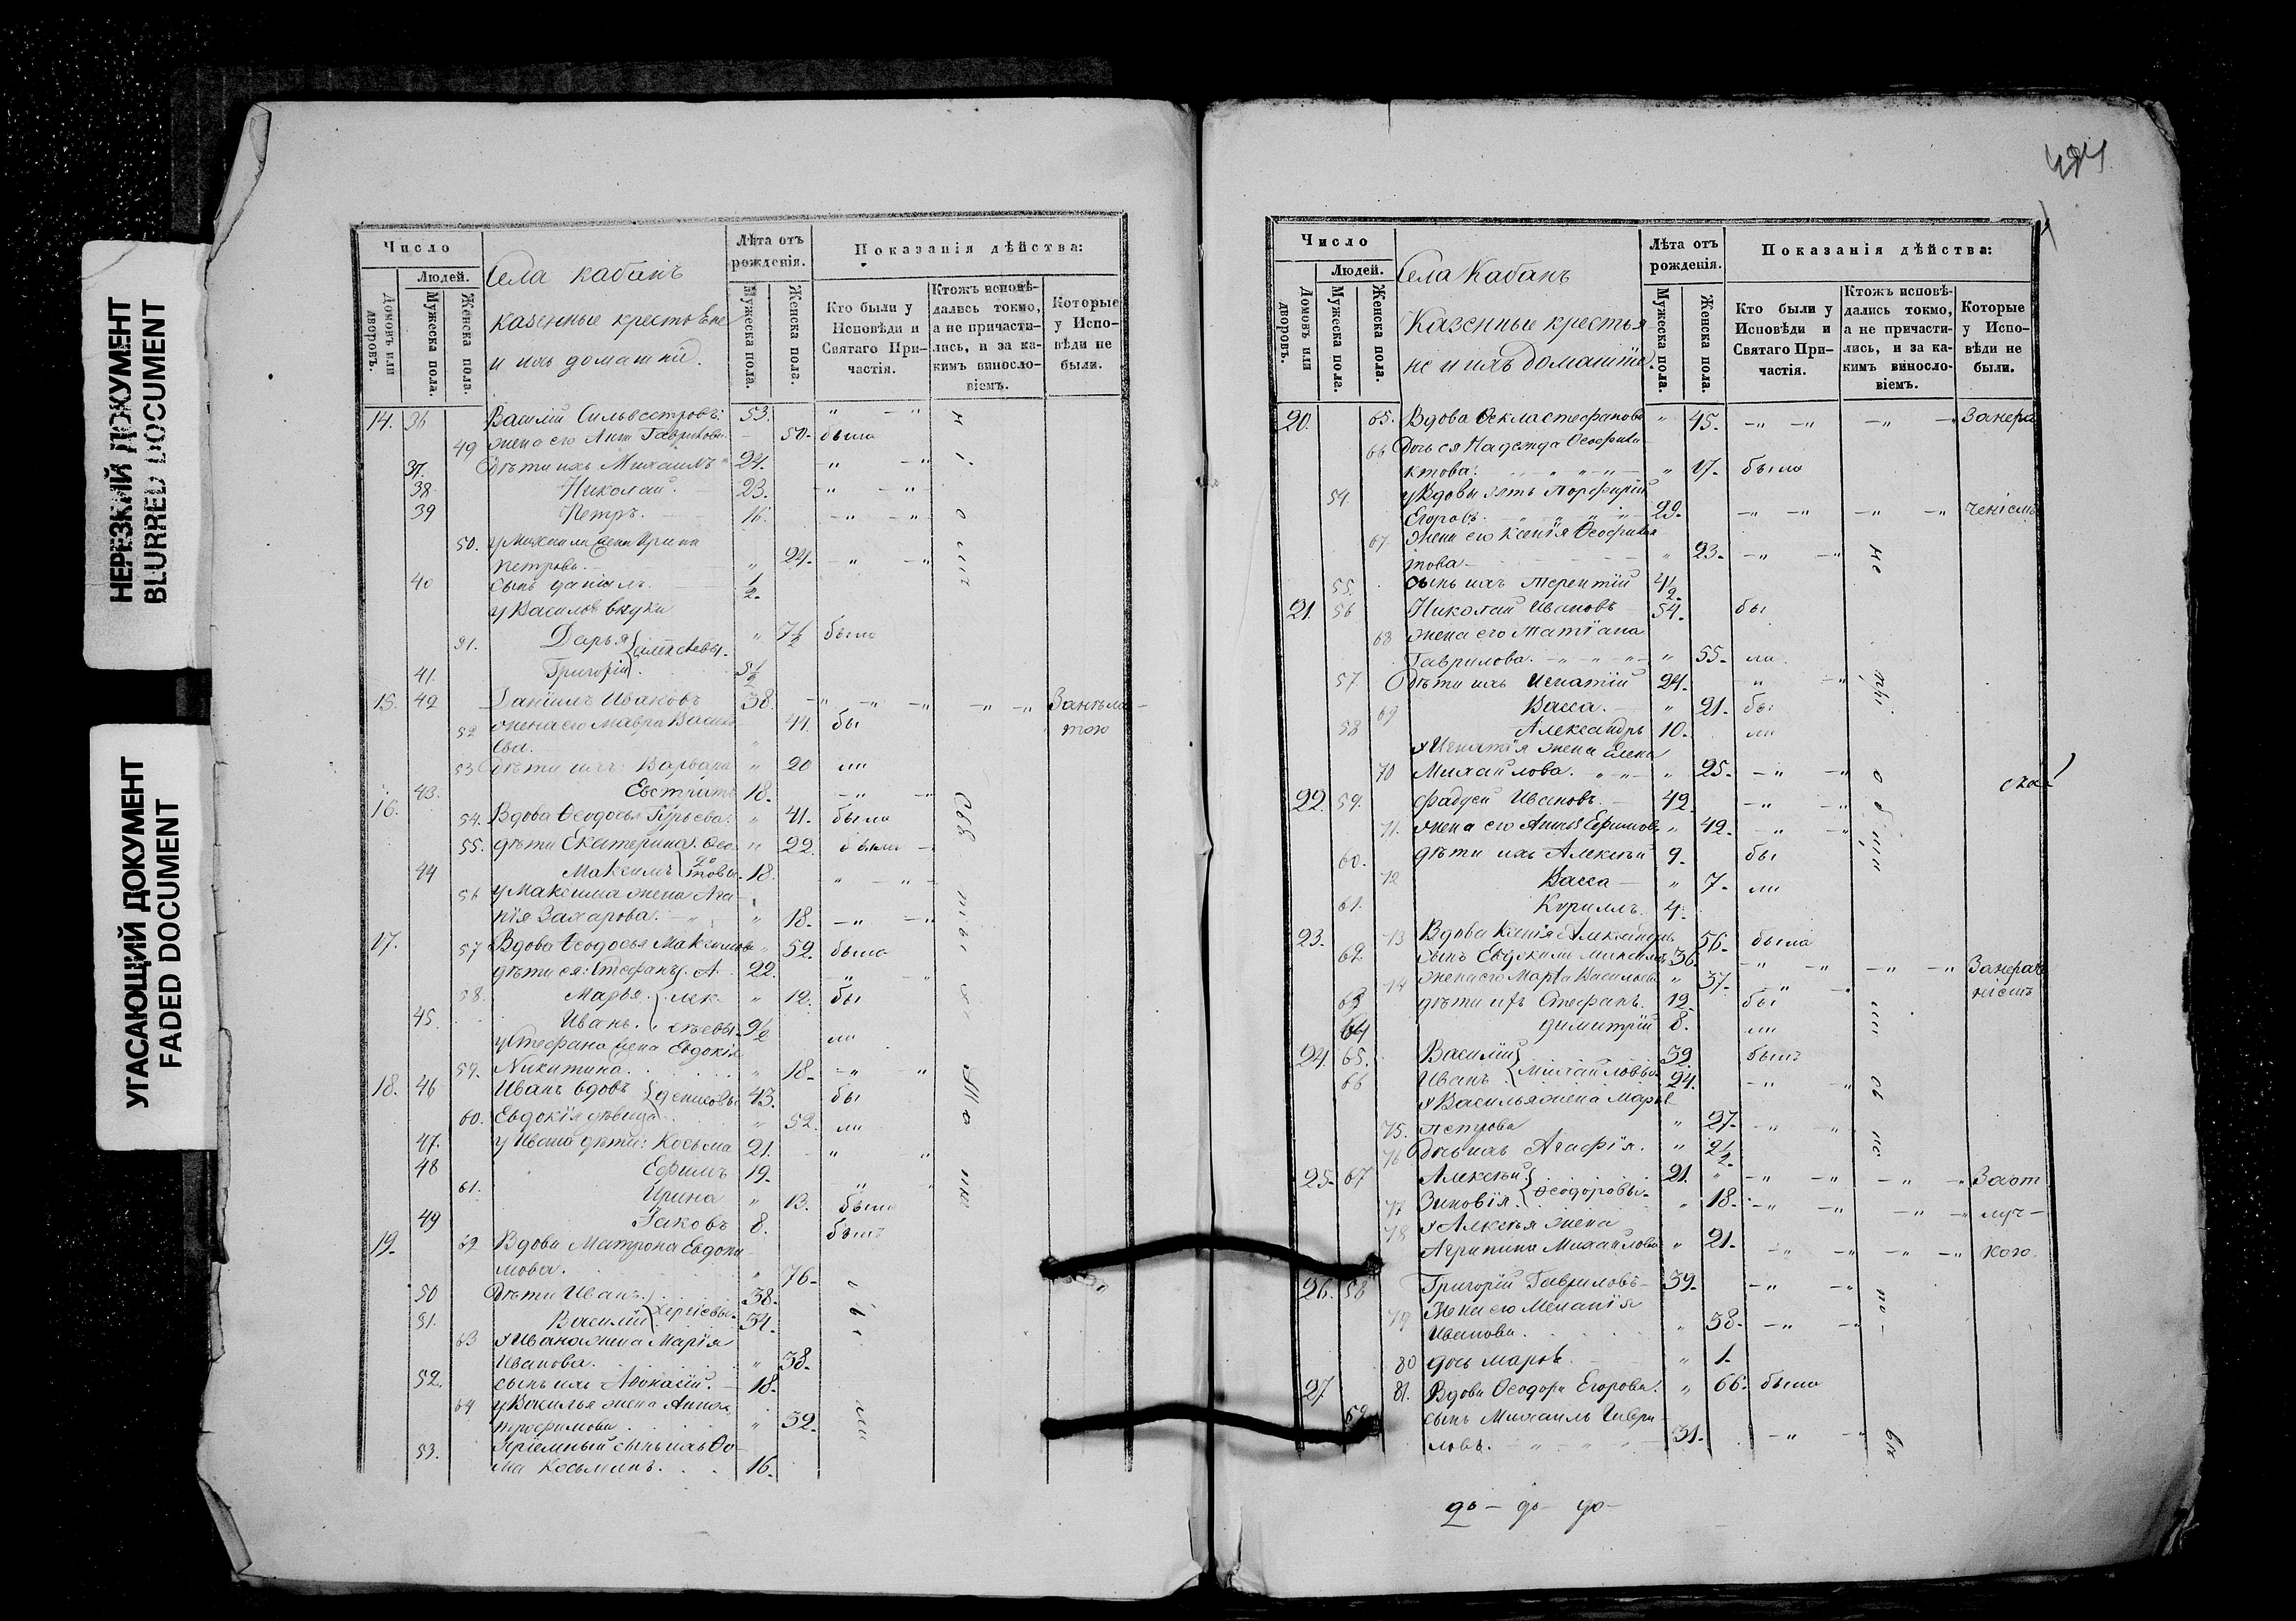 НЕРЕЗКИЙ ДОКУМЕНТ
BLURRED DOCUMENT
УГАСАЮЩИЙ ДОКУМЕНТ
FADED DOCUMENT
Число
Людей.
Домовъ или дворовъ.
Мужеска пола.
Женска пола.
Села Кабанъ
казенные крестьяне
и ихъ домашніе.
Лѣта отъ рожденія.
Мужеска пола.
Женска пола.
Показанія дѣйства:
Кто были у Исповѣди и Святаго Причастія.
Ктожъ исповѣдались токмо, а не причастились, и за какимъ винословіемъ.
Которые у Исповѣди не были.
14. 36 Василій Сильвестровъ 53.
49 жена его Анна Гаврилова 50. была
37. Дѣти ихъ Михаилъ 24.
38 Николай. 23.
39 Петръ. 16.
50. у Михаила жена Ирина
Петрова. 24.
40 сынъ Даніилъ. 1/2.
у Василья внуки
51. Дарья 7 1/2 была
41. Григорій 5 1/2
15. 42 Даніилъ Ивановъ 38.
52 жена его Мавра Василь
ева. 44. бы
53 Дѣти ихъ: Варвара 20 ли
43. Евстратъ 18.
16. 54. Вдова Ѳеодосья Гурьева. 41. была
55. дѣти Екатерина 22. была
44 Максимъ 18.
56 у Максима жена Ага
пія Захарова. 18.
17. 57 Вдова Ѳеодосья Максимова 52. была
дѣти ея: Стефанъ А 22.
58. Марья лек 12. бы
45. Иванъ. сѣевы 9 1/2 ли
у Стефана жена Евдокія
59. Никитина. 18.
18. 46 Иванъ вдовъ Денисовы 43. бы
60. Евдокія дѣвица 52. ли
47. у Ивана дѣти: Косьма 21.
48 Ефимъ 19.
61. Ирина 13. была
49 Іаковъ 8. былъ
19. 62 Вдова Матрона Евдоки
мова. 76.
50 Дѣти Иванъ 38.
51. Василій Сергіевы 34.
63 у Ивана жена Марія
Иванова. 38.
52. сынъ ихъ Аѳонасій. 18.
64 у Василья жена Анна
Трофимова 32.
53. Пріемный сынъ ихъ Ѳо
ма Косьминъ. 16.
Число
Людей.
Домовъ или дворовъ.
Мужеска пола.
Женска пола.
Села Кабанъ
Казенные крестья
не и ихъ домашніе.
Лѣта отъ рожденія.
Мужеска пола.
Женска пола.
Показанія дѣйства:
Кто были у Исповѣди и Святаго Причастія.
Ктожъ исповѣдались токмо, а не причастились, и за какимъ винословіемъ.
Которые у Исповѣди не были.
20. 65. Вдова Ѳекла Стефанова 45. Занера
66 Дочь ея Надежда Ѳеофила
ктова. 17. была
54 у Вдовы зять Порфирій
Егоровъ. 29. ченіемъ
67. Жена его Ксенія Ѳеофилак
това 23.
55. сынъ ихъ Терентій 4 1/2.
21. 56 Николай Ивановъ 54. бы
68 жена его Татіана
Гаврилова. 55. ли
57 Дѣти ихъ Игнатій 24.
69 Васса. 21. бы
58 Александръ 10. ли
у Игнатія жена Елена
70 Михайлова. 25.
22. 59. Фадей Ивановъ. 42.
71. жена его Анна Ефимова 42.
60. дѣти ихъ Алексѣй 9. бы
72 Васса 7. ли
61. Кириллъ. 4.
23. 73 Вдова Ксенія Александр. 56. была
62. сынъ Евдокимъ 36.
74 жена его Марѳа Васильева 37. Занерач
63 дѣти ихъ Стефанъ. 12. бы ніемъ
64 Димитрій 8. ли
24. 65. Василій 32. былъ
66 Иванъ Михайловы 24.
у Василья жена Марья
75. Петрова 27.
76 Дочь ихъ Агафія. 2 1/2.
25. 67 Алексѣй 21. Заот
77 Зиновія Ѳеодоровы 18. луч
78 у Алексѣя жена
Агрипина Михайлова 21. кою.
26. 68 Григорій Гавриловъ 39.
79 Жена его Меланія
Иванова. 38.
80 дочь Марѳа. 1.
27 81. Вдова Ѳеодора Егорова. 66. была
69 сынъ Михаилъ Гаври
ловъ. 31.